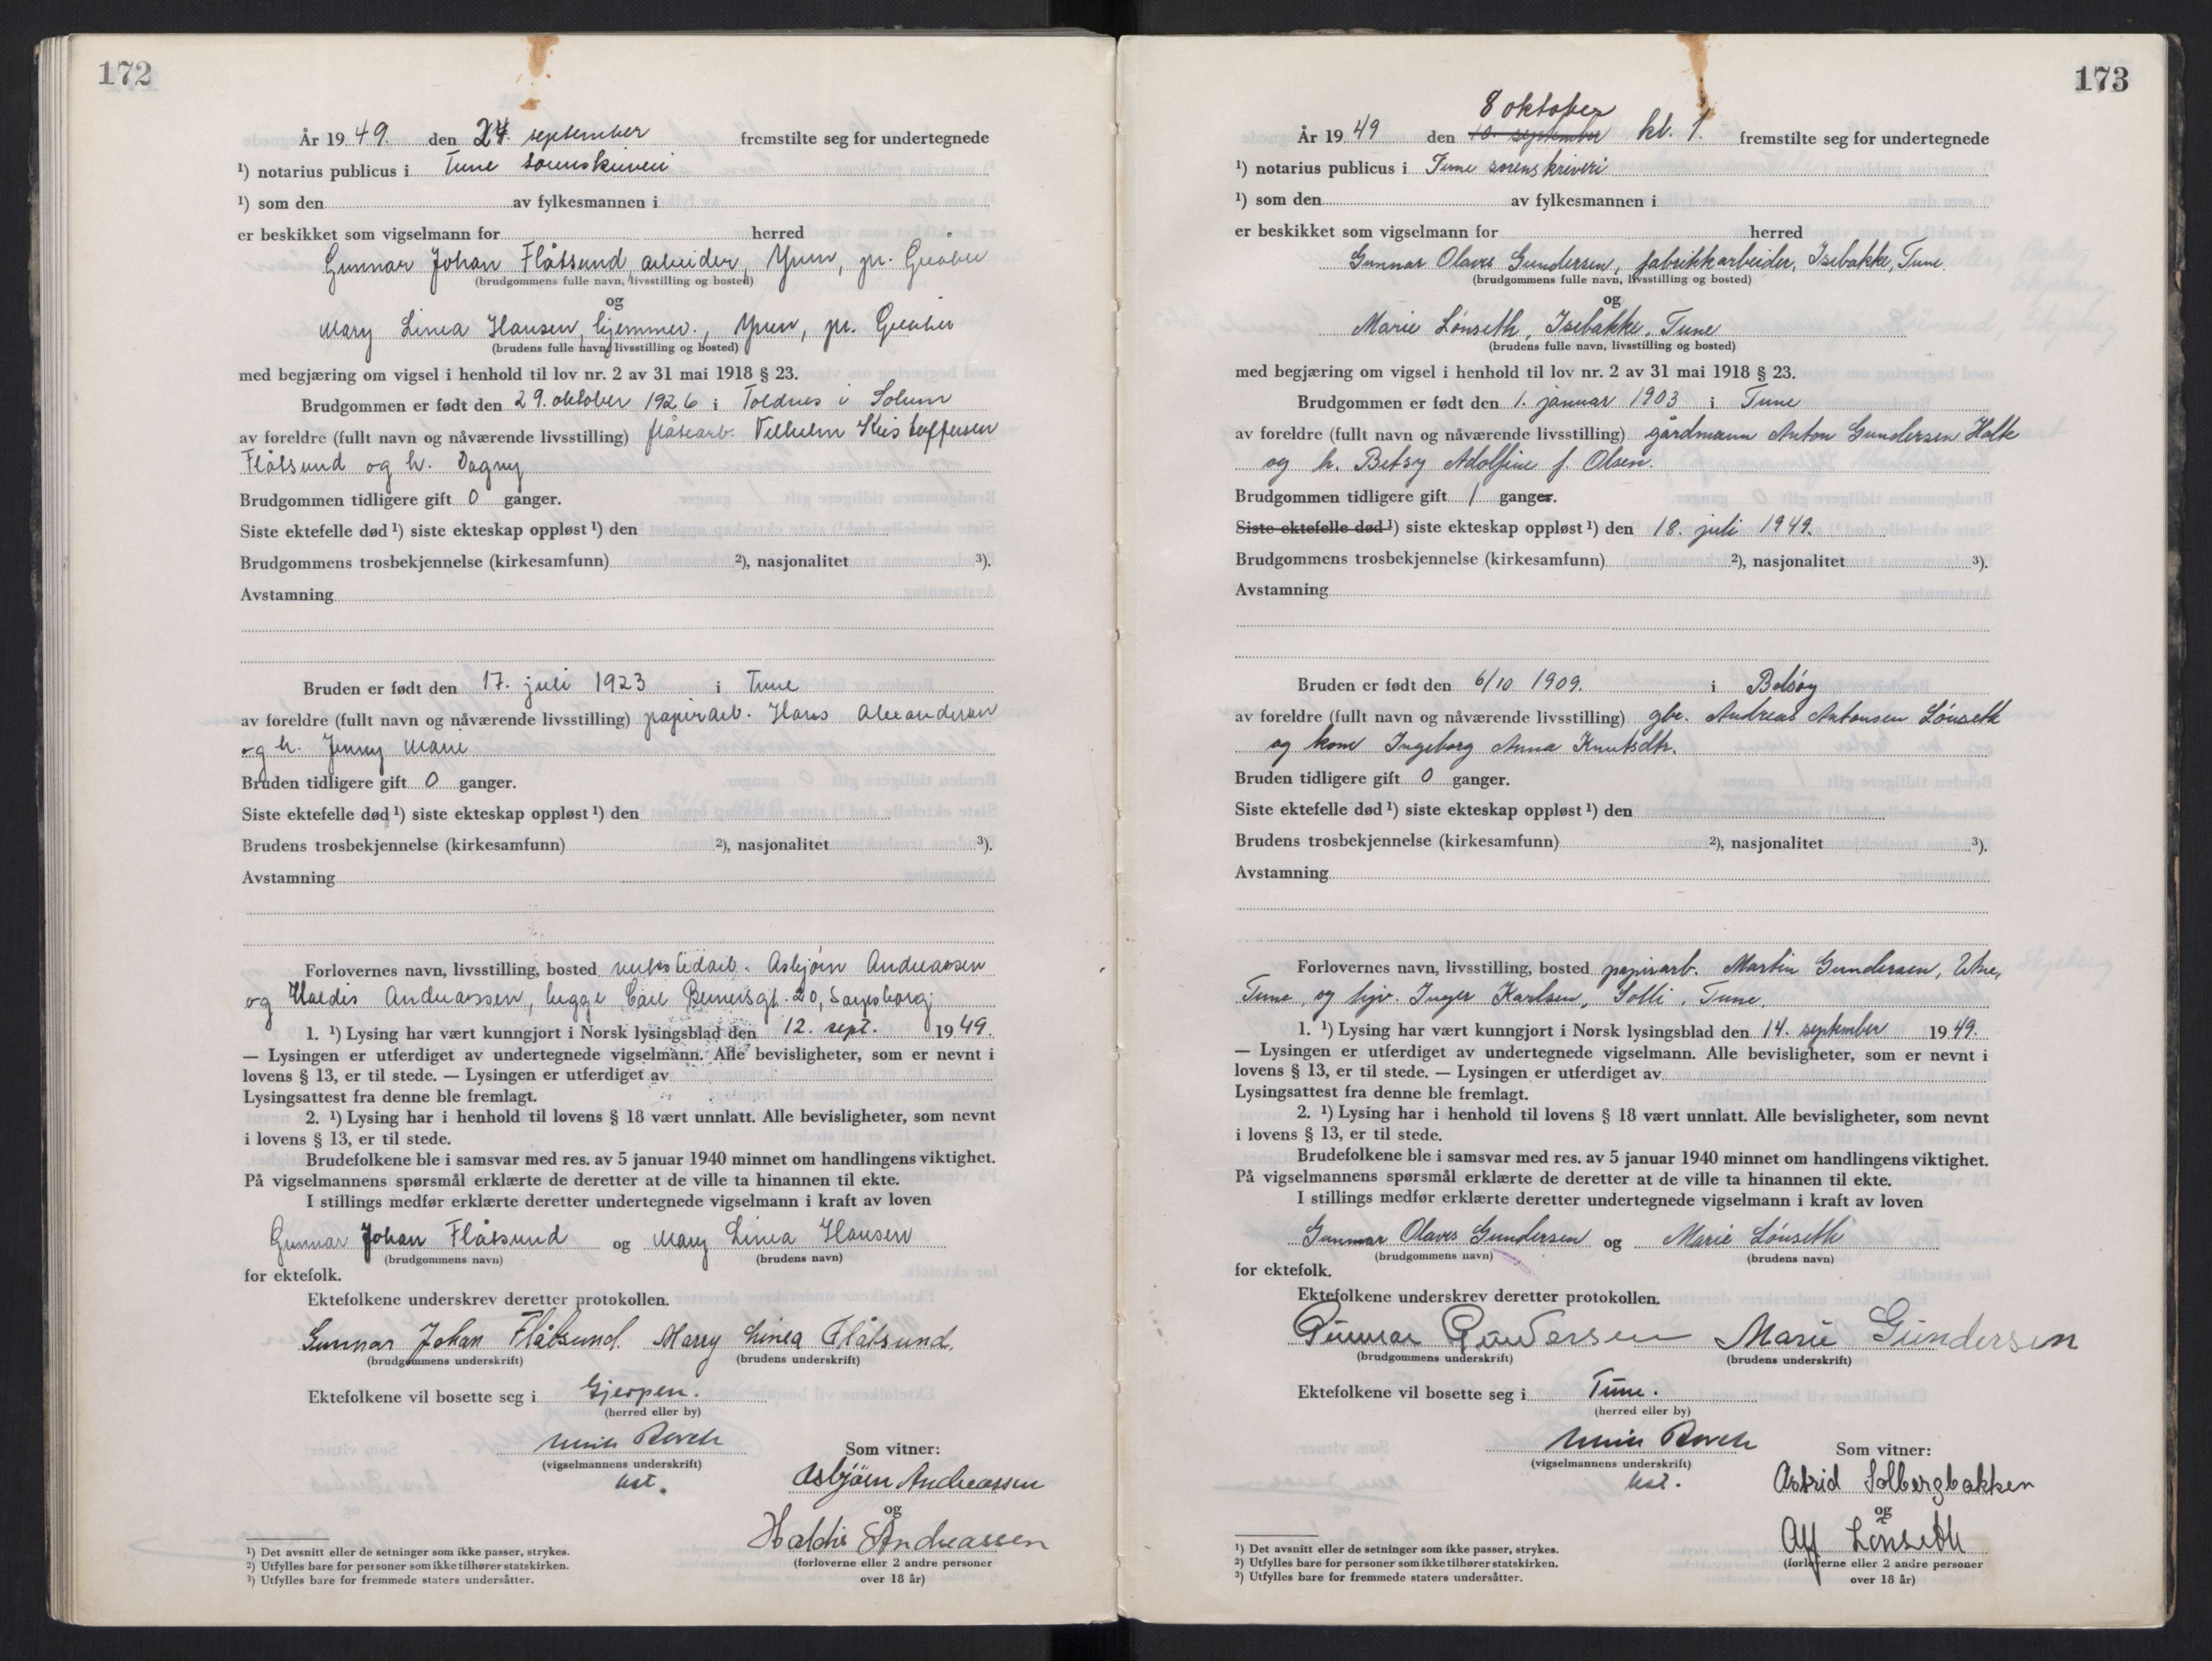 172
År 1949. den 24. september fremstilte seg for undertegnede
¹) notarius publicus i Tune sorenskriveri
¹) som den av fylkesmannen i
er beskikket som vigselmann for herred
Gunnar Johan Flåtsund, arbeider, Yven, pr. Greåker
(brudgommens fulle navn, livsstilling og bosted)
og
Mary Linea Hansen, hjemmev., Yven, pr. Greåker
(brudens fulle navn, livsstilling og bosted)
med begjæring om vigsel i henhold til lov nr. 2 av 31 mai 1918 § 23.
Brudgommen er født den 29. oktober 1926 i Toldnes i Solum
av foreldre (fullt navn og nåværende livsstilling) fløtearb. Vilhelm Kristoffersen
Flåtsund og h. Dagny
Brudgommen tidligere gift 0 ganger.
Siste ektefelle død ¹) siste ekteskap oppløst ¹) den
Brudgommens trosbekjennelse (kirkesamfunn) ²), nasjonalitet ³).
Avstamning
Bruden er født den 17. juli 1923 i Tune
av foreldre (fullt navn og nåværende livsstilling) papirarb. Hans Alexandersen
og h. Jenny Marie
Bruden tidligere gift 0 ganger.
Siste ektefelle død ¹) siste ekteskap oppløst ¹) den
Brudens trosbekjennelse (kirkesamfunn) ²), nasjonalitet ³).
Avstamning
Forlovernes navn, livsstilling, bosted verkstedarb. Asbjørn Andreassen
og Haldis Andreassen, begge Carl Bernersgt. 20, Sarpsborg.
1. ¹) Lysing har vært kunngjort i Norsk lysingsblad den 12. sept. 1949.
— Lysingen er utferdiget av undertegnede vigselmann. Alle bevisligheter, som er nevnt i
lovens § 13, er til stede. — Lysingen er utferdiget av
Lysingsattest fra denne ble fremlagt.
2. ¹) Lysing har i henhold til lovens § 18 vært unnlatt. Alle bevisligheter, som nevnt
i lovens § 13, er til stede.
Brudefolkene ble i samsvar med res. av 5 januar 1940 minnet om handlingens viktighet.
På vigselmannens spørsmål erklærte de deretter at de ville ta hinannen til ekte.
I stillings medfør erklærte deretter undertegnede vigselmann i kraft av loven
Gunnar Johan Flåtsund og Mary Linea Hansen
(brudgommens navn) (brudens navn)
for ektefolk.
Ektefolkene underskrev deretter protokollen.
Gunnar Johan Flåtsund. Marry Linea Flåtsund.
(brudgommens underskrift) (brudens underskrift)
Ektefolkene vil bosette seg i Gjerpen.
(herred eller by)
(vigselmannens underskrift)
Som vitner:
Asbjörn Andreassen
og
Haldis Andreassen
(forloverne eller 2 andre personer
over 18 år)
¹) Det avsnitt eller de setninger som ikke passer, strykes.
²) Utfylles bare for personer som ikke tilhører statskirken.
³) Utfylles bare for fremmede staters undersåtter.
173
8 oktober
År 1949 den 10. september kl. 1. fremstilte seg for undertegnede
¹) notarius publicus i Tune sorenskriveri
¹) som den av fylkesmannen i
er beskikket som vigselmann for herred
Gunnar Olaves Gundersen, fabrikkarbeider, Isebakke, Tune.
(brudgommens fulle navn, livsstilling og bosted)
og
Marie Lønseth, Isebakke, Tune
(brudens fulle navn, livsstilling og bosted)
med begjæring om vigsel i henhold til lov nr. 2 av 31 mai 1918 § 23.
Brudgommen er født den 1. januar 1903 i Tune
av foreldre (fullt navn og nåværende livsstilling) gårdmann Anton Gundersen Holte
og h. Betsy Adolfine f. Olsen.
Brudgommen tidligere gift 1 ganger.
Siste ektefelle død ¹) siste ekteskap oppløst ¹) den 18. juli 1949.
Brudgommens trosbekjennelse (kirkesamfunn) ²), nasjonalitet ³).
Avstamning
Bruden er født den 6/10 1909. i Bolsøy
av foreldre (fullt navn og nåværende livsstilling) gbr. Andreas Antonsen Lønseth
og kone Ingeborg Anna Knutsdtr.
Bruden tidligere gift 0 ganger.
Siste ektefelle død ¹) siste ekteskap oppløst ¹) den
Brudens trosbekjennelse (kirkesamfunn) ²), nasjonalitet ³).
Avstamning
Forlovernes navn, livsstilling, bosted papirarb. Martin Gundersen,
Tune, og hjv. Inger Karlsen, Solli, Tune.
1. ¹) Lysing har vært kunngjort i Norsk lysingsblad den 14. september 1949.
— Lysingen er utferdiget av undertegnede vigselmann. Alle bevisligheter, som er nevnt i
lovens § 13, er til stede. — Lysingen er utferdiget av
Lysingsattest fra denne ble fremlagt.
2. ¹) Lysing har i henhold til lovens § 18 vært unnlatt. Alle bevisligheter, som nevnt
i lovens § 13, er til stede.
Brudefolkene ble i samsvar med res. av 5 januar 1940 minnet om handlingens viktighet.
På vigselmannens spørsmål erklærte de deretter at de ville ta hinannen til ekte.
I stillings medfør erklærte deretter undertegnede vigselmann i kraft av loven
Gunnar Olaves Gundersen og Marie Lønseth
(brudgommens navn) (brudens navn)
for ektefolk.
Ektefolkene underskrev deretter protokollen.
Gunnar Gundersen Marie Gundersen
(brudgommens underskrift) (brudens underskrift)
Ektefolkene vil bosette seg i Tune.
(herred eller by)
(vigselmannens underskrift)
Som vitner:
Astrid Solbergbakken
og
Alf Lönseth
(forloverne eller 2 andre personer
over 18 år)
¹) Det avsnitt eller de setninger som ikke passer, strykes.
²) Utfylles bare for personer som ikke tilhører statskirken.
³) Utfylles bare for fremmede staters undersåtter.